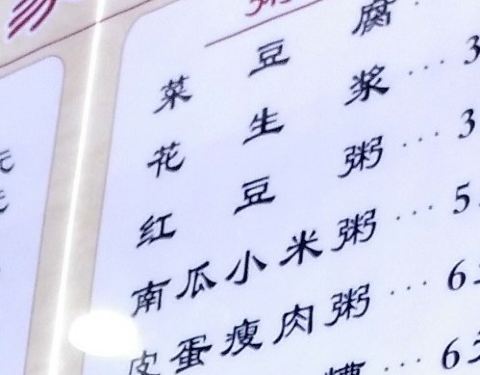 粥
菜豆腐
花生浆 ··· 3
红豆粥 ··· 3
南瓜小米粥 ··· 5
皮蛋瘦肉粥 ··· 6元
··· 6元
元
元